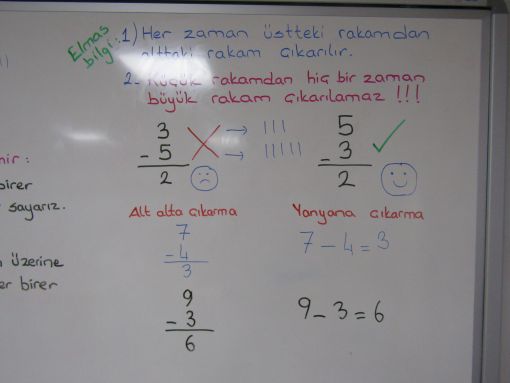 Elmas
bilgi:
1) Her zaman üstteki rakamdan
alttaki rakam çıkarılır.
2- Küçük rakamdan hiç bir zaman
büyük rakam çıkarılamaz !!!
3
- 5
2
→ |||
→ |||||
5
- 3
2
Alt alta çıkarma
7
- 4
3
9
- 3
6
Yanyana çıkarma
7 - 4 = 3
9 - 3 = 6
birer
sayarız.
üzerine
birer